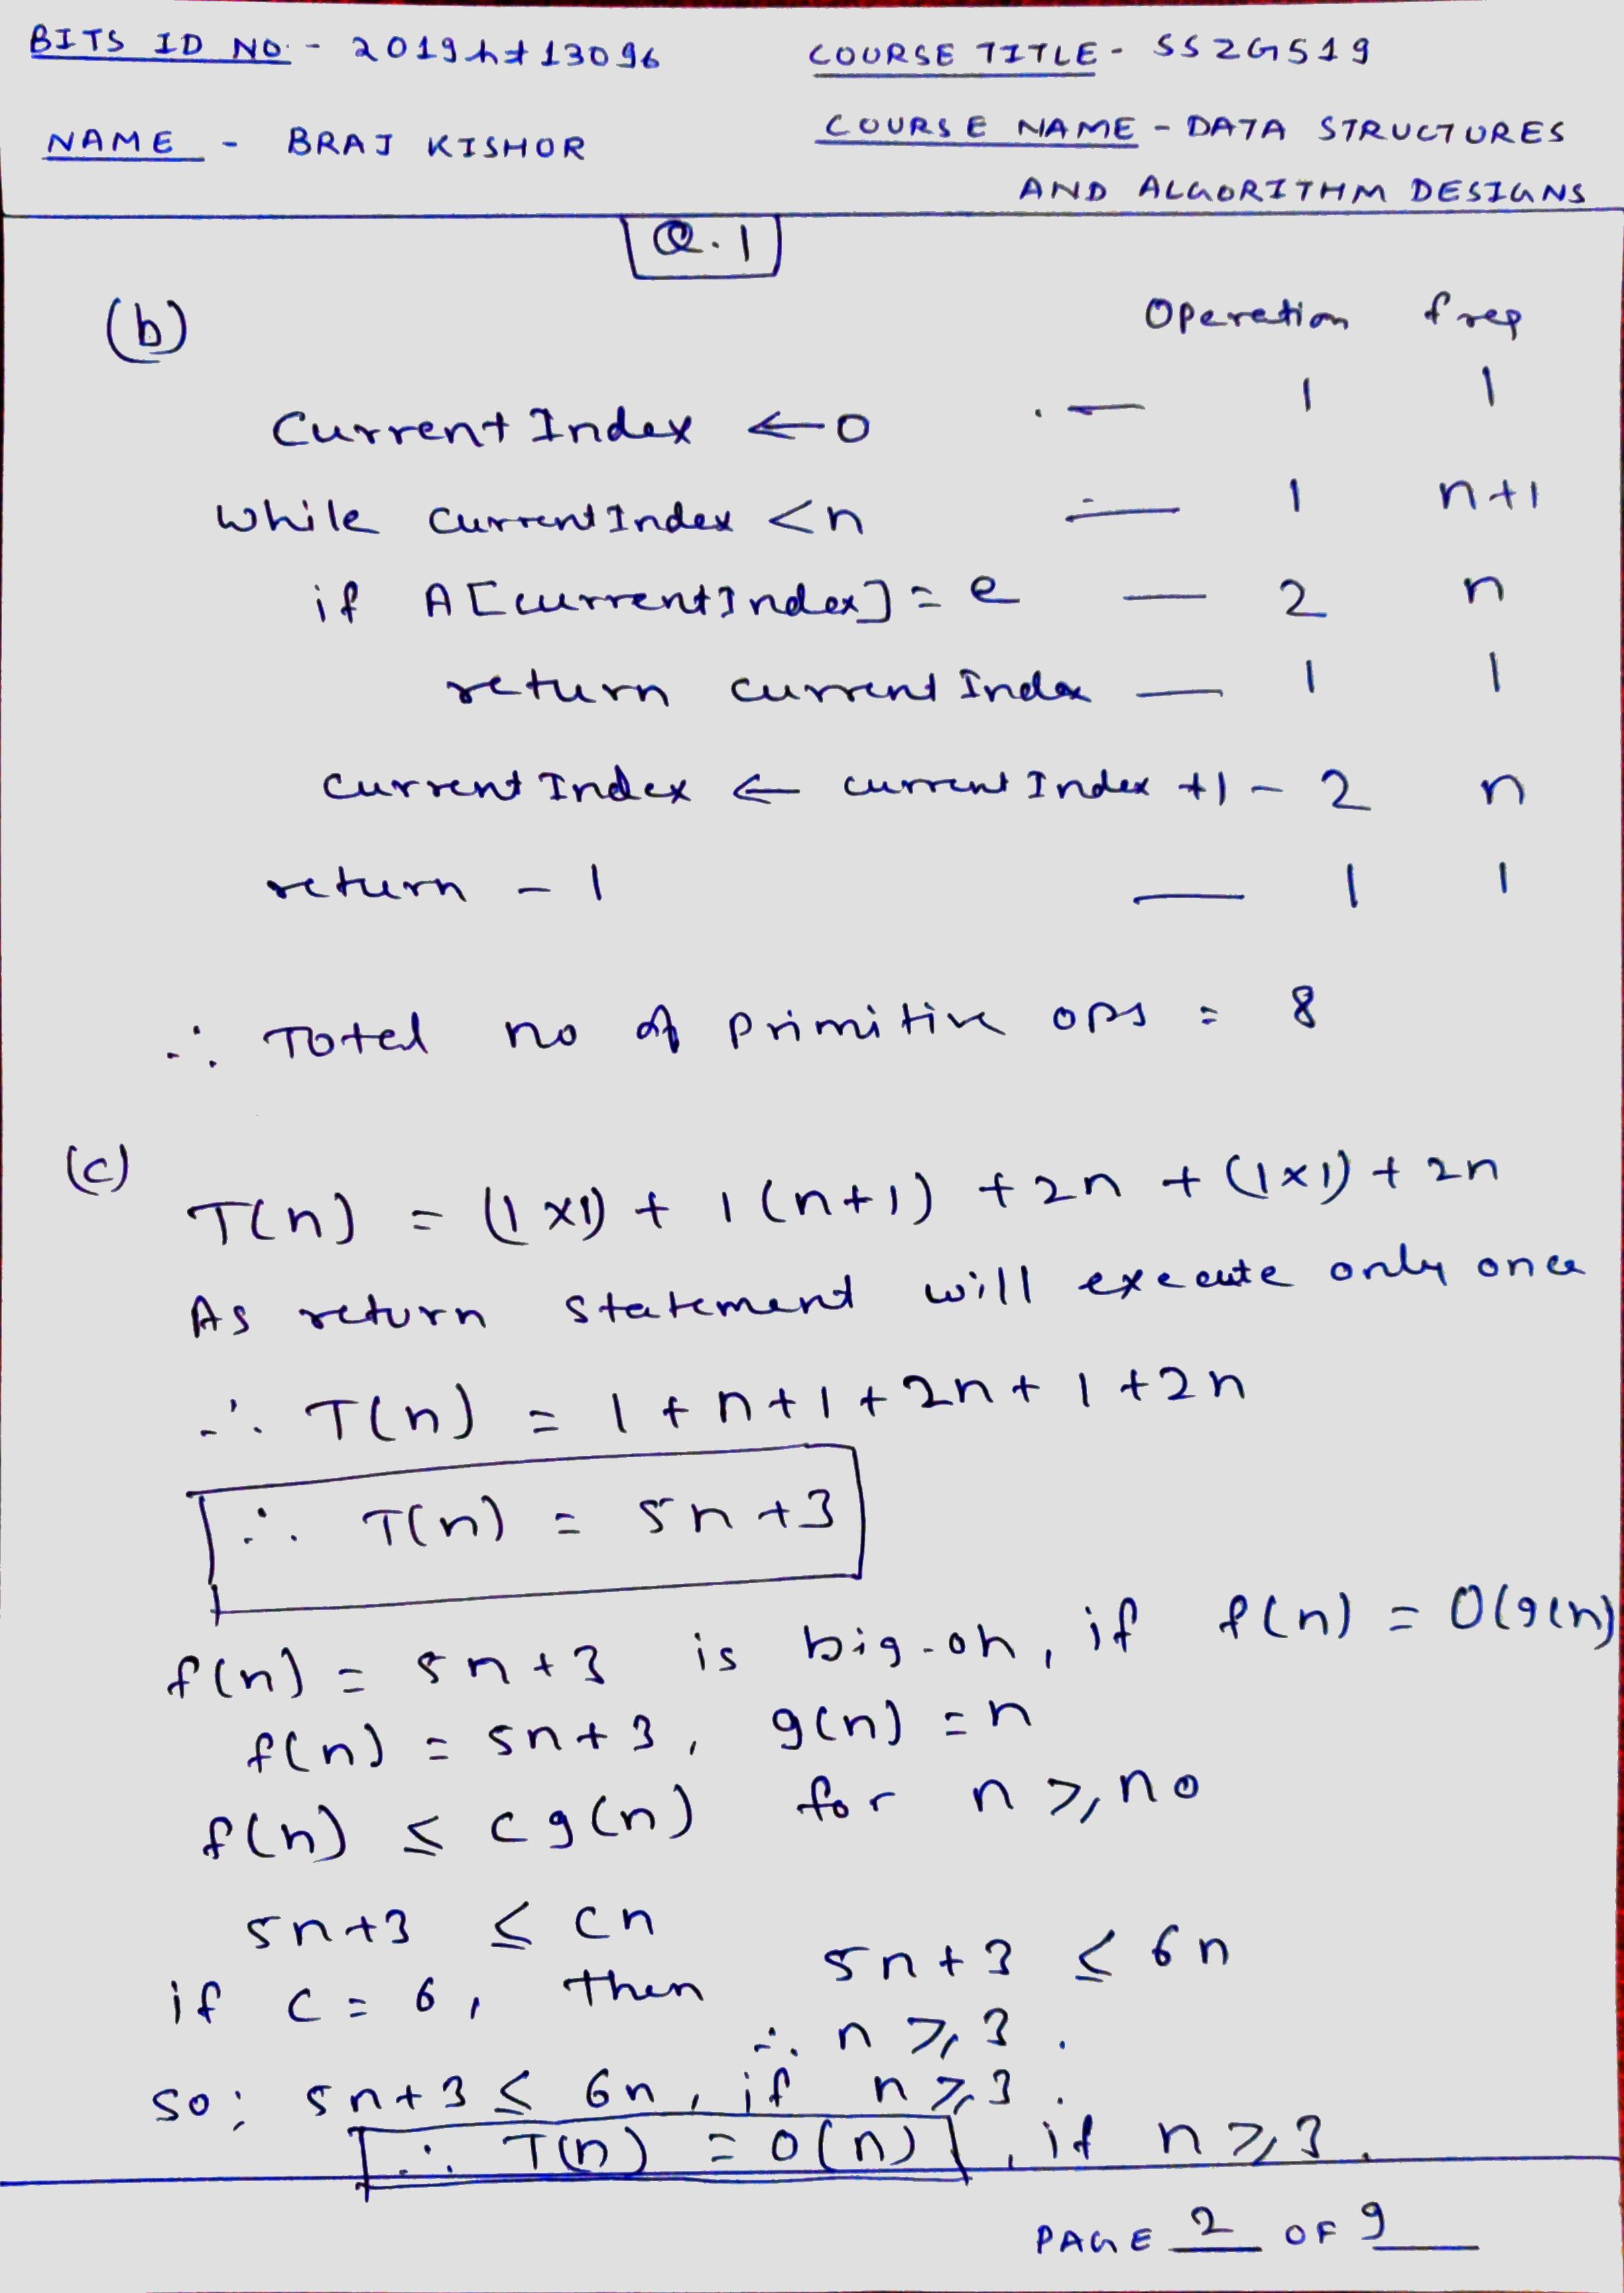 BITS ID NO. - 2019ht13096 COURSE TITLE - SSZG519
NAME - BRAJ KISHOR COURSE NAME - DATA STRUCTURES
AND ALGORITHM DESIGNS
Q.1
(b) Operation freq
CurrentIndex ← 0 — 1 1
While currentIndex < n — 1 n+1
if A[currentIndex] = e — 2 n
return currentIndex — 1 1
currentIndex ← currentIndex +1 - 2 n
return -1 — 1 1
∴ Total no of primitive ops = 8
(c) T(n) = (1×1) + 1(n+1) + 2n + (1×1) + 2n
As return statement will execute only once
∴ T(n) = 1 + n+1 + 2n + 1 + 2n
∴ T(n) = 5n+3
f(n) = 5n+3 is big-oh, if f(n) = O(g(n)
f(n) = 5n+3, g(n) = n
f(n) ≤ cg(n) for n ≥ no
5n+3 ≤ cn
if c = 6, then 5n+3 ≤ 6n
∴ n ≥ 3.
so; 5n+3 ≤ 6n, if n ≥ 3.
∴ T(n) = O(n), if n ≥ 3.
PAGE 2 OF 9